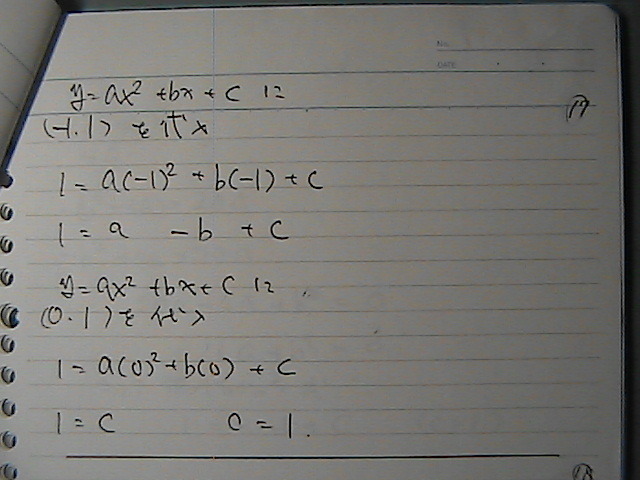 No.
DATE
y=ax²+bx+c に
⑰
(-1.1)を代入
1=a(-1)²+b(-1)+c
1=a -b +c
y=ax²+bx+c に
(0.1)を代入
1=a(0)²+b(0)+c
1=c c=1.
⑱